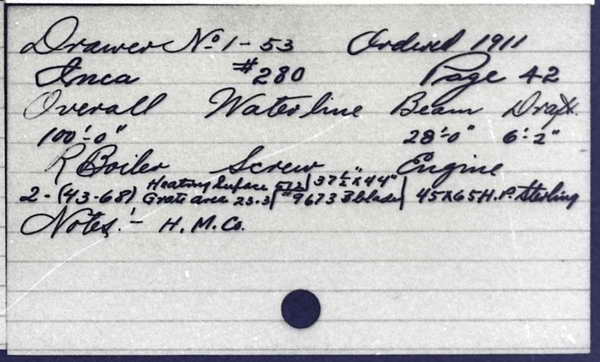 Drawer No 1-53 Ordered 1911
Inca #280 Page 42
Overall Waterline Beam Draft.
100'-0" 28'-0" 6'-2"
R Boiler Screw Engine
2-(43-68) Heating Surface 37½" x 44"
Grate area 23.3 #9673 3 blades 45x65 H.P. Sterling
Notes:- H.M.Co.